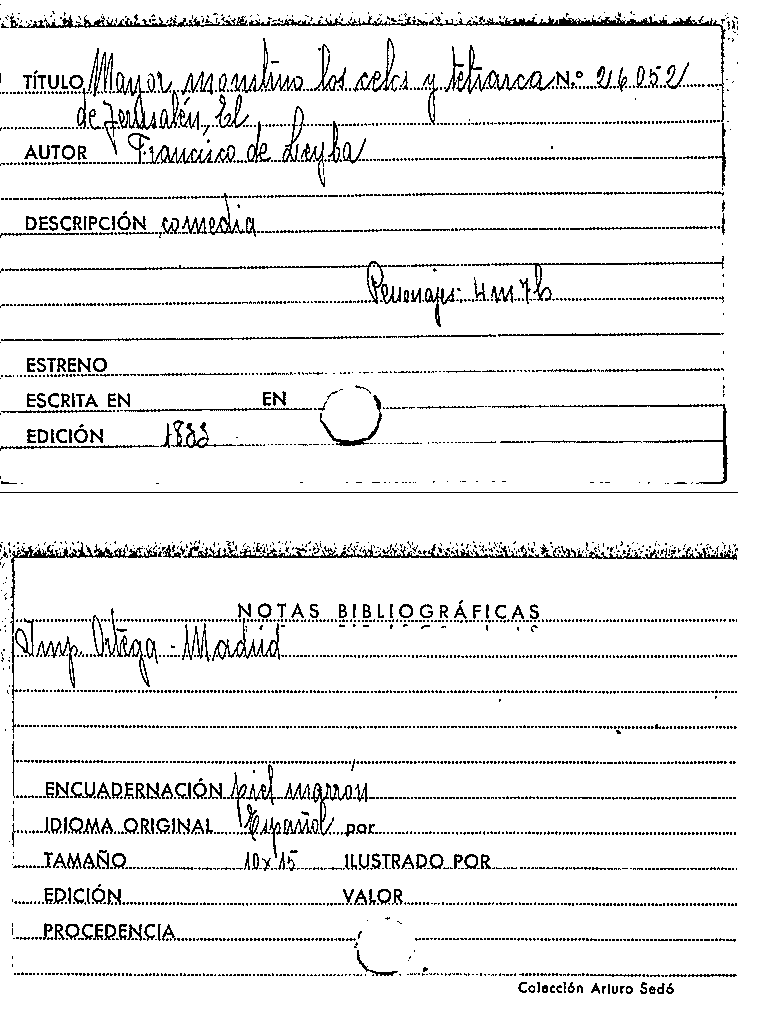 TÍTULO Mayor monstruo los celos y tetrarca N.º 26052
de Jerusalén, El
AUTOR Francisco de Leyba
DESCRIPCIÓN comedia
Personajes: 4m 7h
ESTRENO
ESCRITA EN EN
EDICIÓN 1833
NOTAS BIBLIOGRÁFICAS
Imp. Ortega - Madrid
ENCUADERNACIÓN piel marrón
IDIOMA ORIGINAL Español por
TAMAÑO 10x15 ILUSTRADO POR
EDICIÓN VALOR
PROCEDENCIA
Colección Arturo Sedó